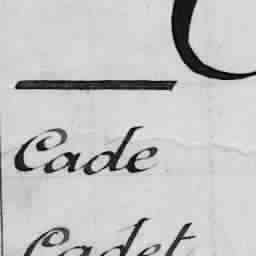 Cade
Cadet